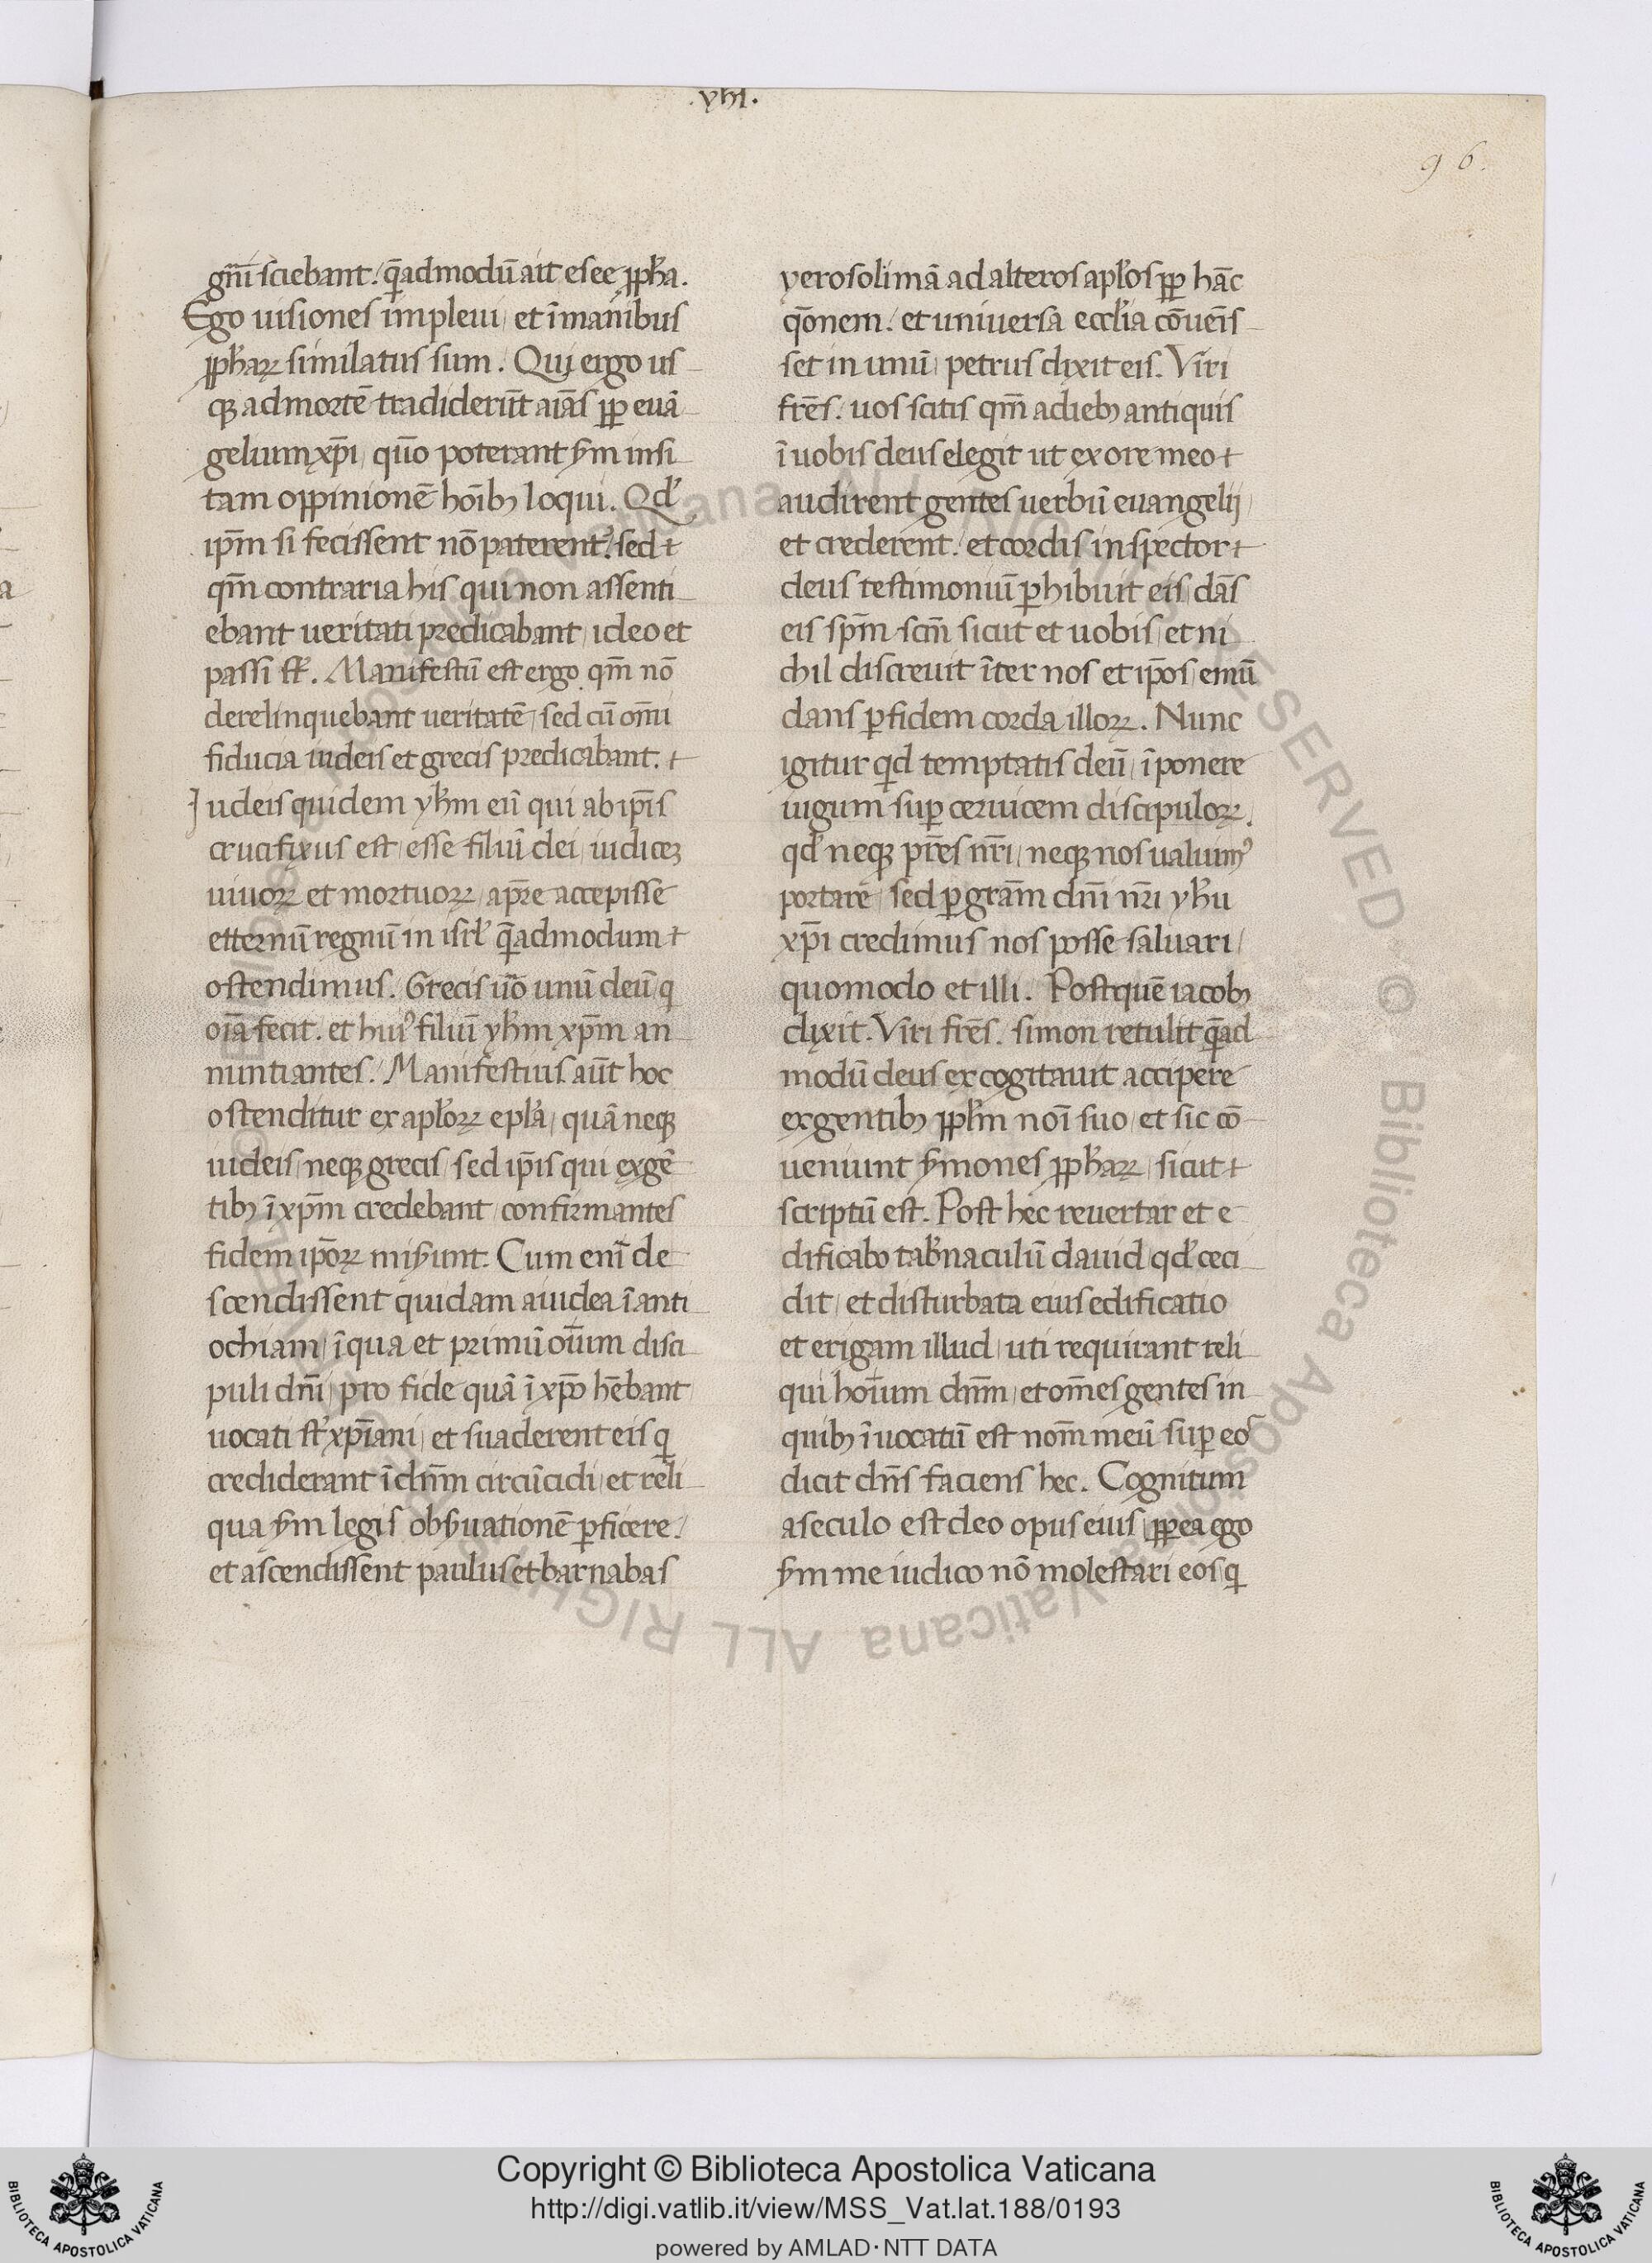 .yhI.
96.
gn̄i sciebant. q̄admodū ait esee ꝓph̄a.
Ego uisiones impleui, et ī manibus
ꝓph̄aꝝ similatus sum. Qui ergo us
qꝫ ad mortē tradiderūt aīas ꝓp euā
gelium xp̄i, quō poterant s̄m insi
tam oppinionē hoīb loqui. Qd̄
ip̄m si fecissent nō paterent᷒. sed
qm̄ contraria his qui non assenti
ebant ueritati predicabant, ideo et
passi sī. Manifestū est ergo qm̄ nō
derelinquebant ueritatē, sed cū om̄i
fiducia iudeis et grecis predicabant.
Iudeis quidem yh̄m eū qui ab ip̄is
crucifixus est, esse filiū dei, iudicēꝫ
uiuoꝝ et mortuoꝝ, a pr̄e accepisse
etternū regnū in isrl̄ q̄admodum
ostendimus. Grecis ūo unū deū q
oīa fecit. et hui᷒ filiū yh̄m xp̄m an
nuntiantes. Manifestius aūt hoc
ostenditur ex apl̄oꝝ epl̄a, quā neqꝫ
iudeis, neqꝫ grecis, sed ip̄is qui ex gē
tib ī xp̄m credebant, confirmantes
fidem ip̄oꝝ miserunt. Cum enī de
scendissent quidam a iudea ī anti
ochiam, ī qua et primū om̄ium disci
puli dn̄i, pro fide quā ī xp̄o hēbant
uocati st̄ xp̄iani, et suaderent eis q
crediderant ī dn̄m circūcidi, et reli
qua s̄m legis obseruationē ꝑficere.
et ascendissent paulus et barnabas
yerosolimā ad alteros apl̄os ꝓp hāc
q̄onem. et uniuersa eccl̄ia cōuenis
set in unū, petrus dixit eis. Viri
fr̄es. uos scitis qm̄ a dieb antiquis
ī uobis deus elegit ut ex ore meo
audirent gentes uerbū euangelij,
et crederent. et cordis inspector
deus testimoniū ꝑhibuit eis, dās
eis sp̄m scm̄ sicut et uobis, et ni
chil discreuit īter nos et ip̄os, emū
dans ꝑ fidem corda illoꝝ. Nunc
igitur qd temptatis deū, īponere
iugum suꝑ ceruicem discipuloꝝ,
qd̄ neqꝫ pr̄es nr̄i, neqꝫ nos ualuim᷒
portare, sed ꝑ grām dn̄i nr̄i yh̄u
xp̄i credimus nos posse saluari,
quomodo et illi. Post quē iacob
dixit. Viri fr̄es. simon retulit q̄ad
modū deus excogitauit accipere
ex gentib ꝓpl̄m noī suo, et sic cō
ueniunt s̄mones ꝓph̄aꝝ, sicut
scriptū est. Post hec reuertar et e
dificabo tab̄naculū dauid, qd̄ ceci
dit, et disturbata eius edificatio
et erigam illud, uti requirant reli
qui hoīum dn̄m, et om̄es gentes in
quib īuocatū est nom̄ meū suꝑ eos
dicit dn̄s faciens hec. Cognitum
a seculo est deo opus eius, ꝓp ea ego
s̄m me iudico nō molestari eos q
© Biblioteca Apostolica Vaticana ALL RIGHTS RESERVED
Copyright © Biblioteca Apostolica Vaticana
http://digi.vatlib.it/view/MSS_Vat.lat.188/0193
powered by AMLAD·NTT DATA
BIBLIOTECA APOSTOLICA VATICANA
BIBLIOTECA APOSTOLICA VATICANA